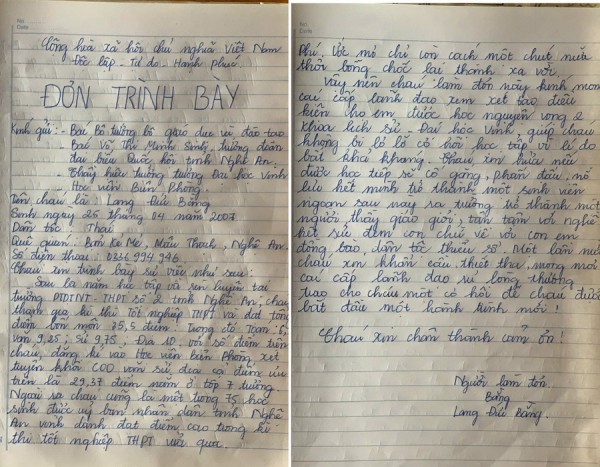 Cộng hòa xã hội chủ nghĩa Việt Nam
Độc lập - Tự do - Hạnh phúc
ĐƠN TRÌNH BÀY
Kính gửi: - Bác Bộ trưởng bộ giáo dục và đào tạo
- Bác Võ Thị Minh Sinh, trưởng đoàn
đại biểu Quốc hội tỉnh Nghệ An.
- Thầy hiệu trưởng trường Đại học Vinh
- Học viện Biên Phòng.
Tên cháu là: Lang Đức Bằng
Sinh ngày 25 tháng 04 năm 2007
Dân tộc: Thái
Quê quán: Bản Kẻ Mẻ, Mậu Thạch, Nghệ An.
Số điện thoại: 0366 994 996.
Cháu xin trình bày sự việc như sau:
Sau 12 năm học tập và rèn luyện tại
trường PTDTNT - THPT số 2 tỉnh Nghệ An, cháu
tham gia kì thi tốt nghiệp THPT và đạt tổng
điểm bốn môn 35,5 điểm! Trong đó Toán: 6,
Văn 9,25; Sử 9,75; Địa 10, với số điểm trên
cháu, đăng kí vào Học viện Biên Phòng xét
tuyển khối C00 văn sử, địa cả điểm ưu
tiên là 29,37 điểm nằm ở tốp 7 trường.
Ngoài ra cháu cũng là một trong 75 học
sinh được uỷ ban nhân dân tỉnh Nghệ
An vinh danh đạt điểm cao trong kì
thi tốt nghiệp THPT vừa qua.
Phí ước mơ chỉ còn cách một chút nữa
thôi bỗng chốc lại thành xa vời.
Vậy nên cháu làm đơn này kính mong
các cấp lãnh đạo xem xét tạo điều
kiện cho em được học nguyện vọng 2
khoa lịch sử - Đại học Vinh, giúp cháu
không bị lỡ lỡ cơ hội học tập vì lí do
bất khả kháng. Cháu xin hứa nếu
được học tiếp sẽ cố gắng, phấn đấu, nỗ
lực hết mình trở thành một sinh viên
ngoan sau này ra trường trở thành một
người thầy giáo giỏi, tận tâm với nghề
hết sức đem con chữ về với con em
đồng bào dân tộc thiểu số. Một lần nữa
cháu xin khẩn cầu, thiết tha, mong mỏi
các cấp lãnh đạo rủ lòng thương
trao cho cháu một cơ hội để cháu được
bắt đầu một hành trình mới!
Cháu xin chân thành cảm ơn!
Người làm đơn.
Bằng
Lang Đức Bằng.